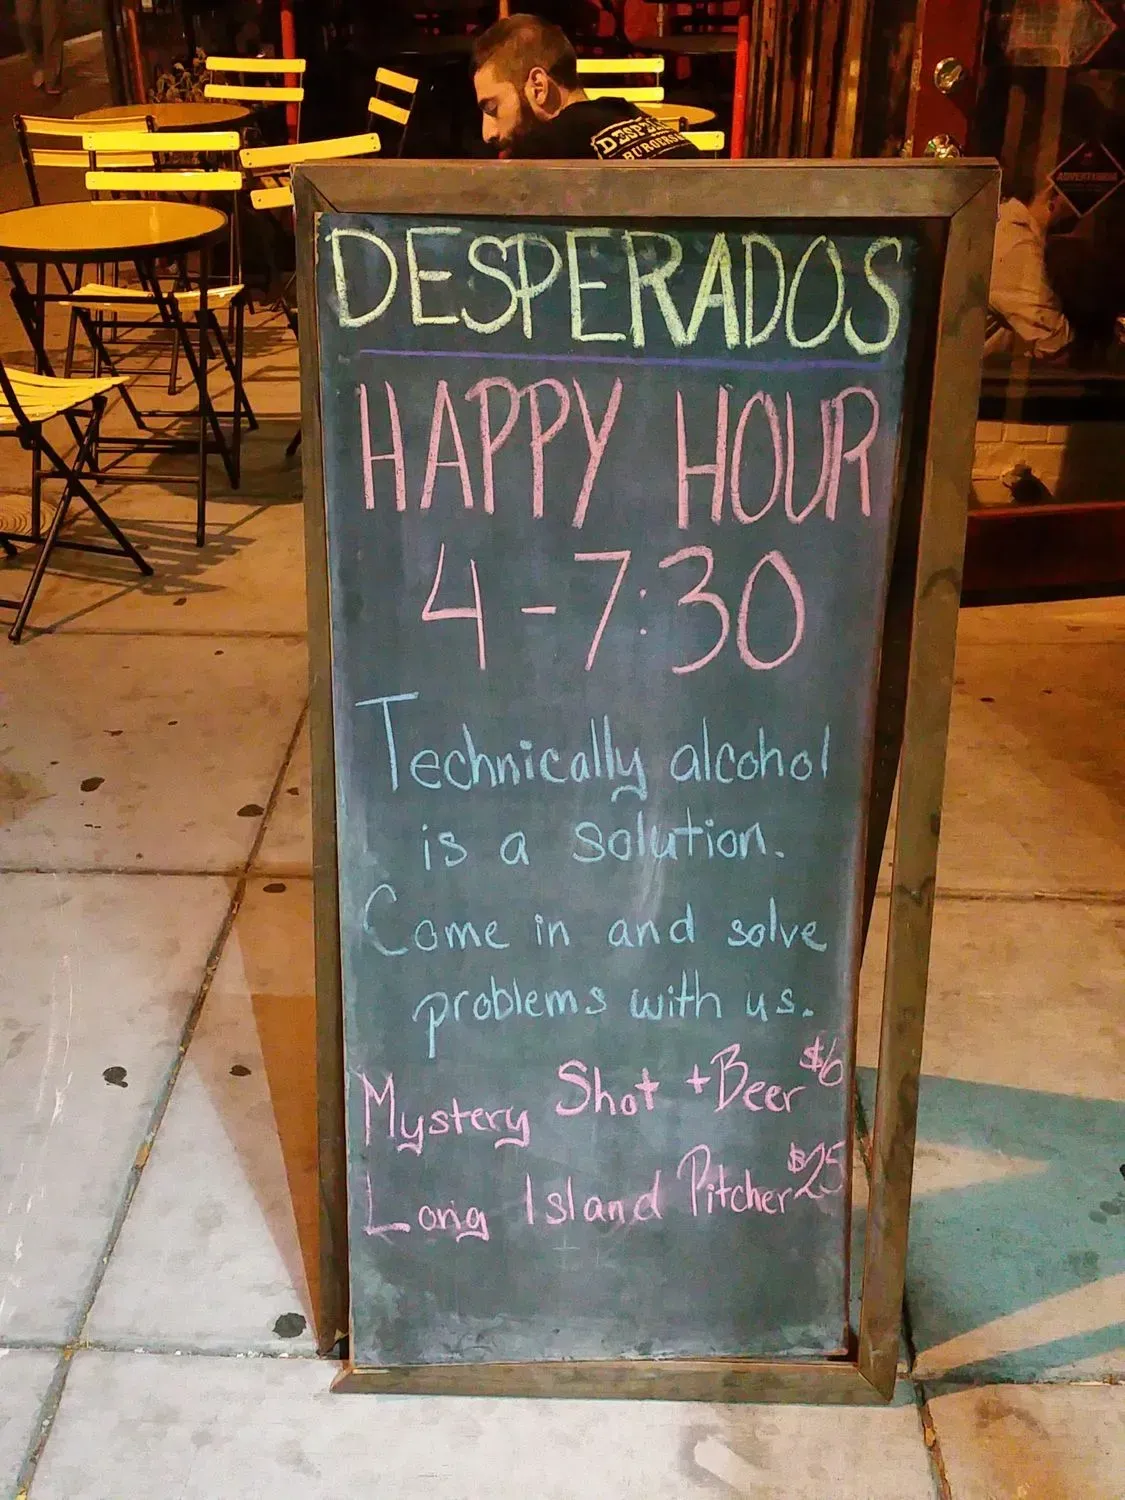 DESPERADOS
HAPPY HOUR
4-7:30
Technically alcohol
is a solution.
Come in and solve
problems with us.
Mystery Shot + Beer $6
Long Island Pitcher $25
BURGERS